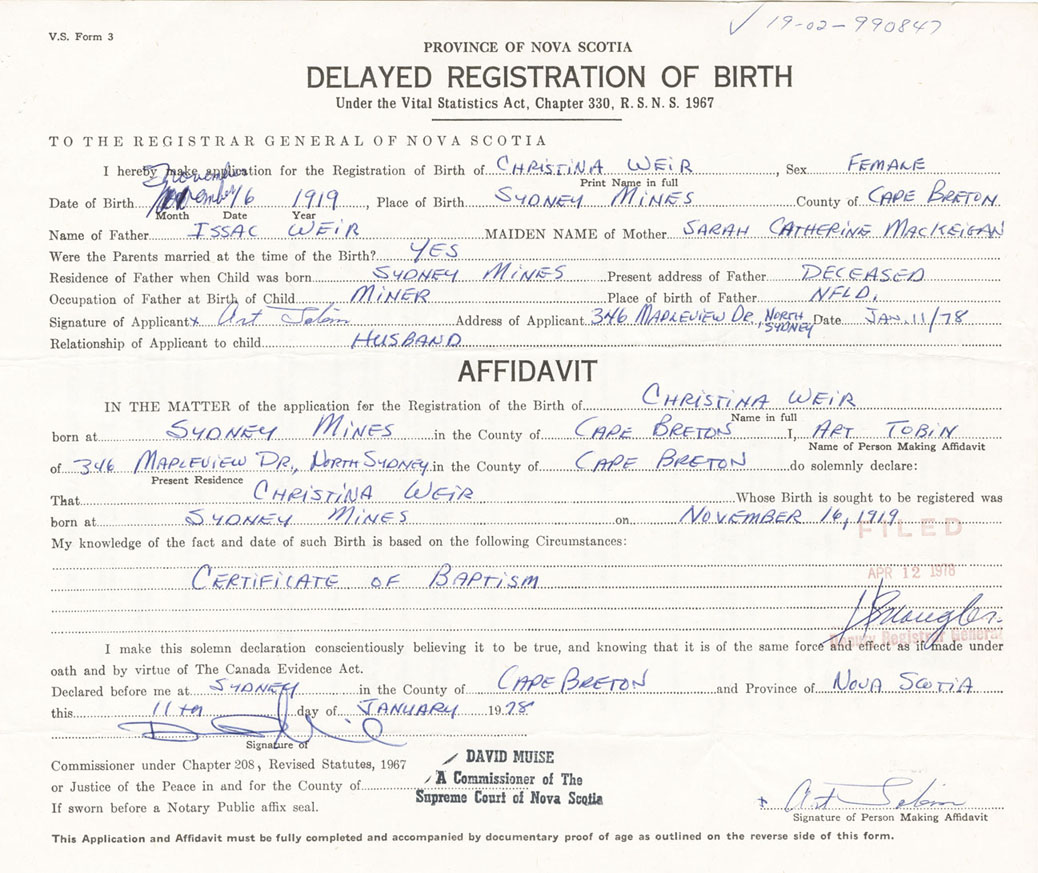 V.S. Form 3
19-02-990847
PROVINCE OF NOVA SCOTIA
DELAYED REGISTRATION OF BIRTH
Under the Vital Statistics Act, Chapter 330, R.S.N.S. 1967
TO THE REGISTRAR GENERAL OF NOVA SCOTIA
I hereby make application for the Registration of Birth of CHRISTINA WEIR, Sex FEMALE
Print Name in full
November
Date of Birth November 16 1919, Place of Birth SYDNEY MINES County of CAPE BRETON
Month Date Year
Name of Father ISSAC WEIR MAIDEN NAME of Mother SARAH CATHERINE MACKEIGAN
Were the Parents married at the time of the Birth? YES
Residence of Father when Child was born SYDNEY MINES Present address of Father DECEASED
Occupation of Father at Birth of Child MINER Place of birth of Father NFLD.
Signature of Applicant x Art Tobin Address of Applicant 346 MAPLEVIEW DR, NORTH SYDNEY Date JAN. 11/78
Relationship of Applicant to child HUSBAND
AFFIDAVIT
IN THE MATTER of the application for the Registration of the Birth of CHRISTINA WEIR
Name in full
born at SYDNEY MINES in the County of CAPE BRETON I, ART TOBIN
Name of Person Making Affidavit
of 346 MAPLEVIEW DR., NORTH SYDNEY in the County of CAPE BRETON do solemnly declare:
Present Residence
That CHRISTINA WEIR Whose Birth is sought to be registered was
born at SYDNEY MINES on NOVEMBER 16, 1919
FILED
My knowledge of the fact and date of such Birth is based on the following Circumstances:
CERTIFICATE OF BAPTISM
APR 12 1978
Deputy Registrar General
I make this solemn declaration conscientiously believing it to be true, and knowing that it is of the same force and effect as if made under
oath and by virtue of The Canada Evidence Act.
Declared before me at SYDNEY in the County of CAPE BRETON and Province of NOVA SCOTIA
this 11th day of JANUARY 1978
Signature of
Commissioner under Chapter 208, Revised Statutes, 1967
or Justice of the Peace in and for the County of
If sworn before a Notary Public affix seal.
DAVID MUISE
A Commissioner of The
Supreme Court of Nova Scotia
x Art Tobin
Signature of Person Making Affidavit
This Application and Affidavit must be fully completed and accompanied by documentary proof of age as outlined on the reverse side of this form.